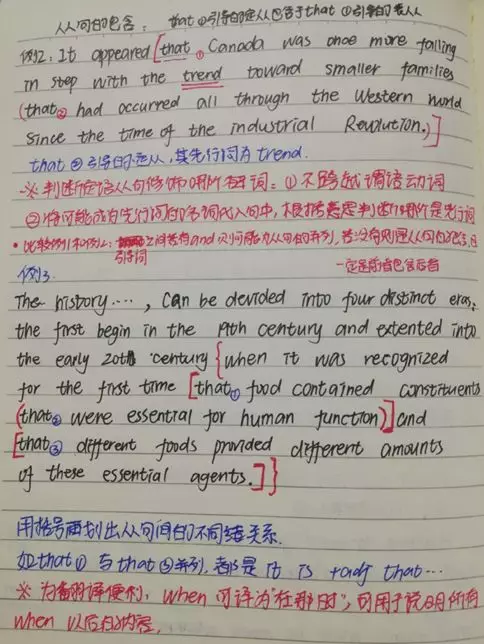 从句的包含: that②引导的定从包含于that①引导的表从
例2: It appeared [that① Canada was once more falling
in step with the trend toward smaller families
(that② had occurred all through the Western world
since the time of the industrial Revolution.)]
that②引导的定从,其先行词为trend.
※判断定语从句修饰哪个名词:①不跨越谓语动词
②将可能成为先行词的名词代入句中,根据意思判断哪个是先行词
•比较例1和例2: 之间若有and则可能为从句的并列,若没有则是从句的包含,且
引导词
一定是前者包含后者
例3.
The history...., can be devided into four distinct eras:
the first begin in the 19th century and extented into
the early 20th century {when it was recognized
for the first time [that① food contained constituents
(that② were essential for human function)] and
[that③ different foods provided different amounts
of these essential agents.]}
用括号画划出从句间的不同结关系.
如that①与that③并列,都是It is +adj that...
※为翻译便利,when可译为"在那时",可用于说明所有
when以后的内容.